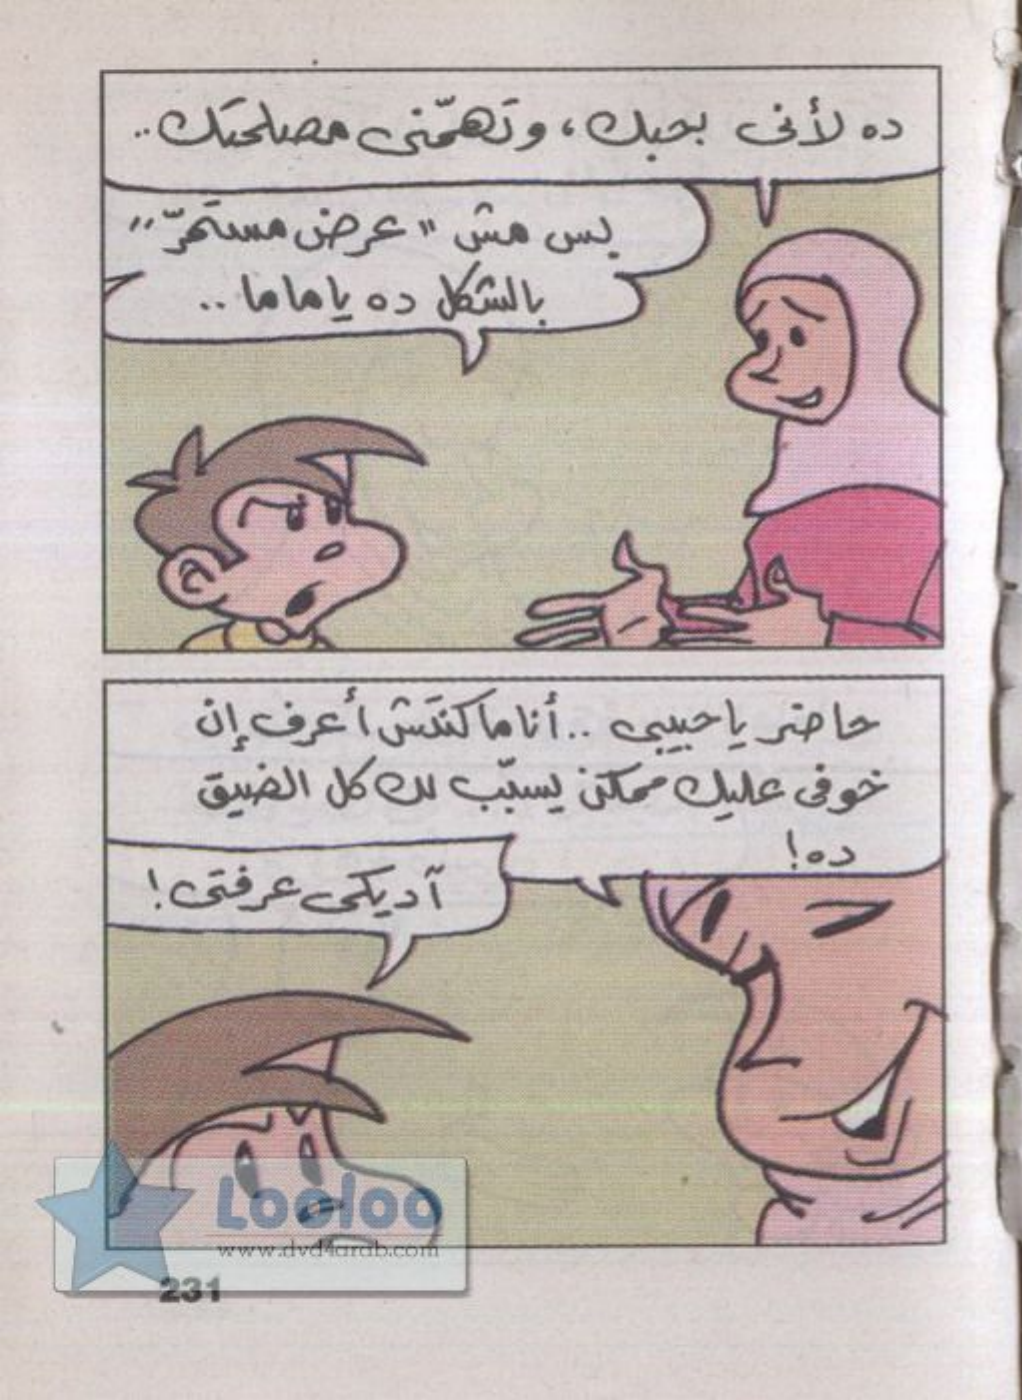 ده لأنى بحبك، وتهمّنى مصلحتك..
بس مش "عرض مستمرّ"
بالشكل ده ياماما..
حاضر ياحبيبى ..أنا ماكنتش أعرف إن
خوفى عليك ممكن يسبّب لك كل الضيق
ده!
آديكى عرفتى!
Looloo
www.dvd4arab.com
231